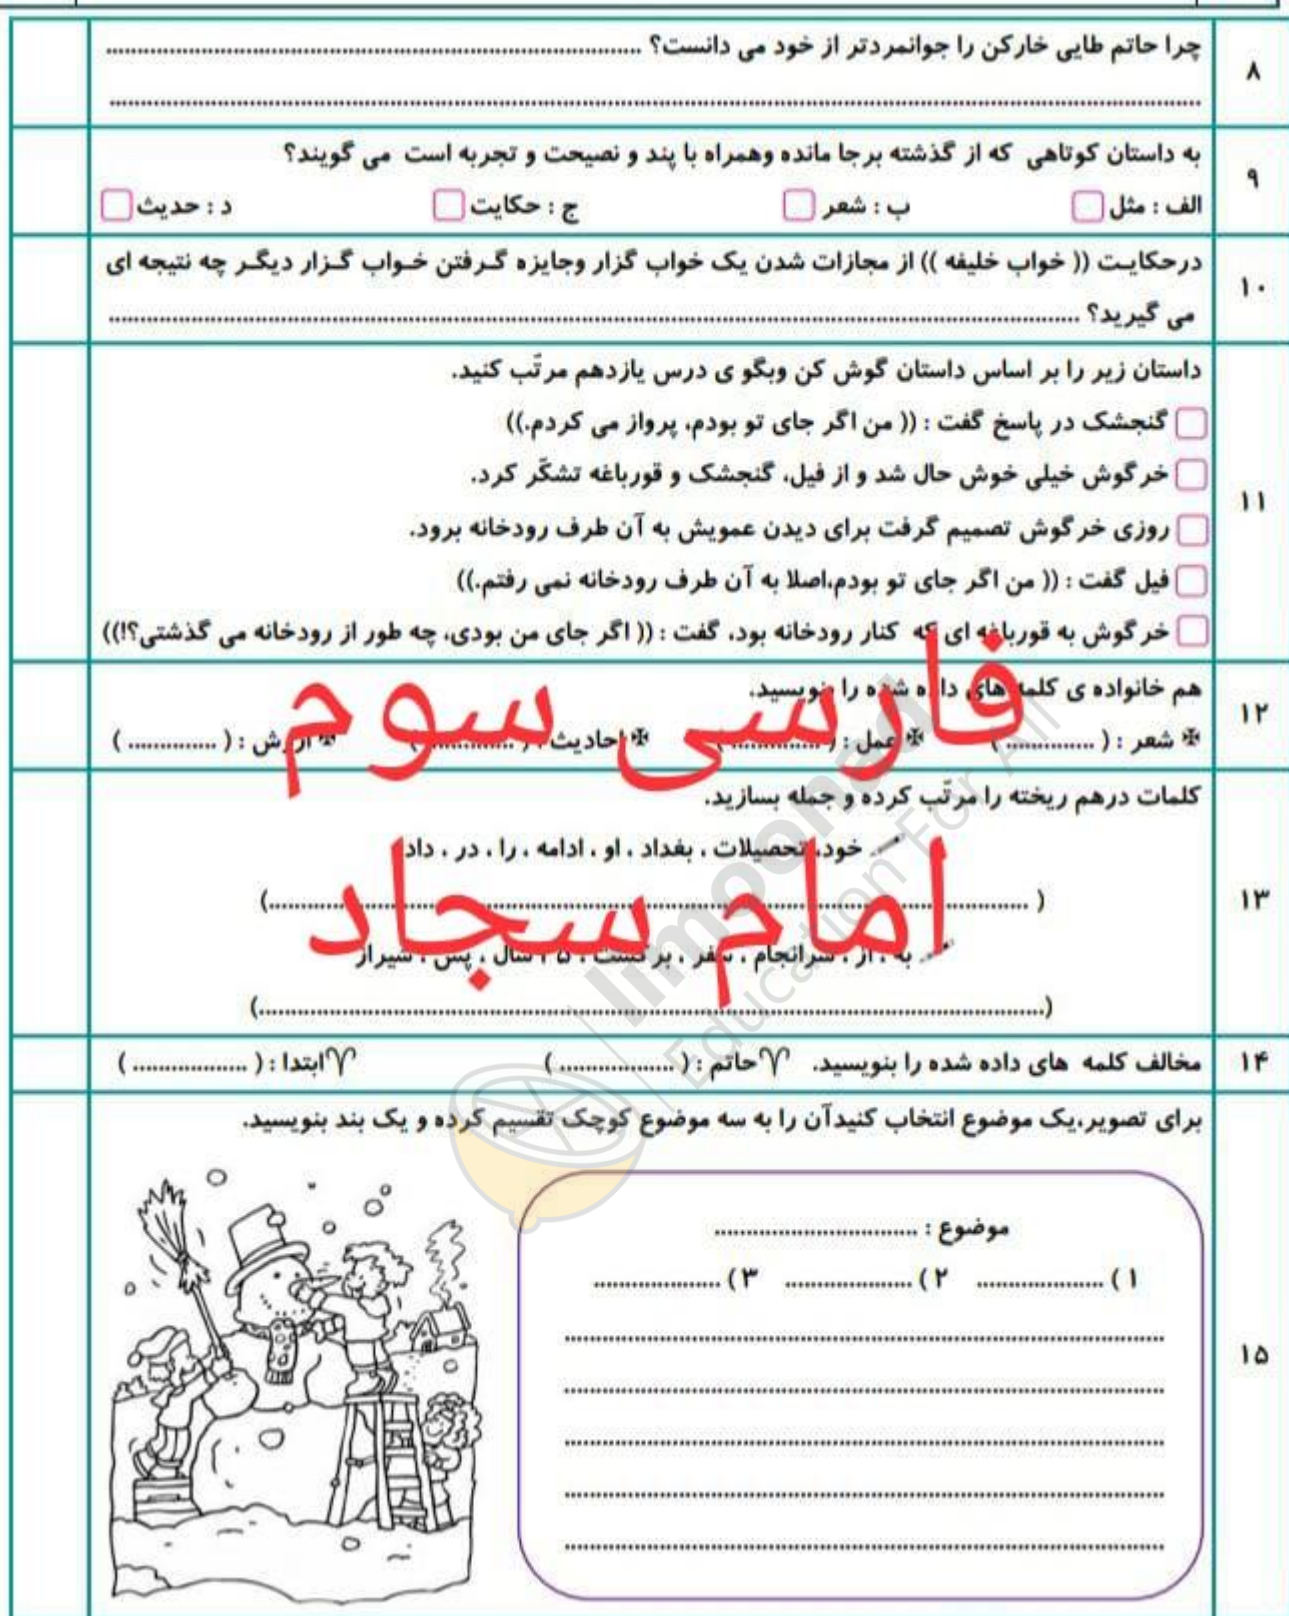 ۸
چرا حاتم طایی خارکن را جوانمردتر از خود می دانست؟ ..........
۹
به داستان کوتاهی که از گذشته برجا مانده وهمراه با پند و نصیحت و تجربه است می گویند؟
الف : مثل ب : شعر ج : حکایت د : حدیث
۱۰
درحکایت (( خواب خلیفه )) از مجازات شدن یک خواب گزار وجایزه گرفتن خواب گزار دیگر چه نتیجه ای
می گیرید؟ ..........
۱۱
داستان زیر را بر اساس داستان گوش کن وبگو ی درس یازدهم مرتّب کنید.
گنجشک در پاسخ گفت : (( من اگر جای تو بودم، پرواز می کردم.))
خرگوش خیلی خوش حال شد و از فیل، گنجشک و قورباغه تشکّر کرد.
روزی خرگوش تصمیم گرفت برای دیدن عمویش به آن طرف رودخانه برود.
فیل گفت : (( من اگر جای تو بودم،اصلا به آن طرف رودخانه نمی رفتم.))
خرگوش به قورباغه ای که کنار رودخانه بود، گفت : (( اگر جای من بودی، چه طور از رودخانه می گذشتی؟!))
۱۲
هم خانواده ی کلمه های داده شده را بنویسید.
شعر : ( .............. ) عمل : ( .............. ) احادیث : ( .............. ) ارزش : ( .............. )
فارسی سوم
۱۳
کلمات درهم ریخته را مرتّب کرده و جمله بسازید.
خود، تحصیلات ، بغداد ، او ، ادامه ، را ، در ، داد
( .......... )
امام سجاد
به ، از ، سرانجام ، سفر ، برگشت ، ۳۵ ، سال ، پس ، شیراز
(..........)
۱۴
مخالف کلمه های داده شده را بنویسید. حاتم : ( .................. ) ابتدا : ( .................. )
۱۵
برای تصویر،یک موضوع انتخاب کنیدآن را به سه موضوع کوچک تقسیم کرده و یک بند بنویسید.
موضوع : ..........
۱ ) .................... ۲ ) .................... ۳ ) ....................
limoonad
Education For All